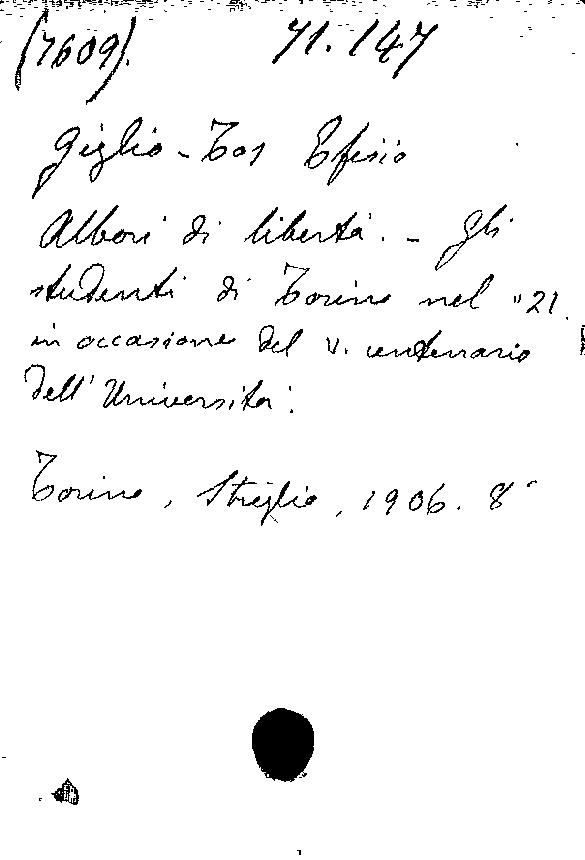 (7609). 71.147
Giglio-Tos Efisio
Albori di libertà. - Gli
studenti di Torino nel "21.
in occasione del V. centenario
dell'Università.
Torino, Streglio, 1906. 8°